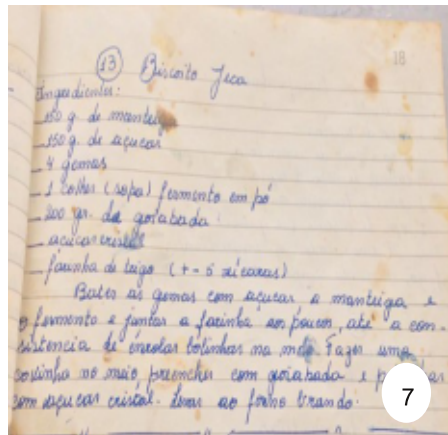 13 Biscoito Jeca
18
Ingredientes:
150 g. de manteiga
150 g. de açucar
4 gemas
1 colher (sopa) fermento em pó
200 gr. de goiabada
açucar cristal
farinha de trigo (+ - 5 xícaras)
Bater as gemas com açucar a manteiga e
o fermento e juntar a farinha aos poucos, até a con-
sistencia de enrolar bolinhas na mão. Fazer uma
covinha no meio preencher com goiabada e
com açucar cristal. Levar ao forno brando.
7